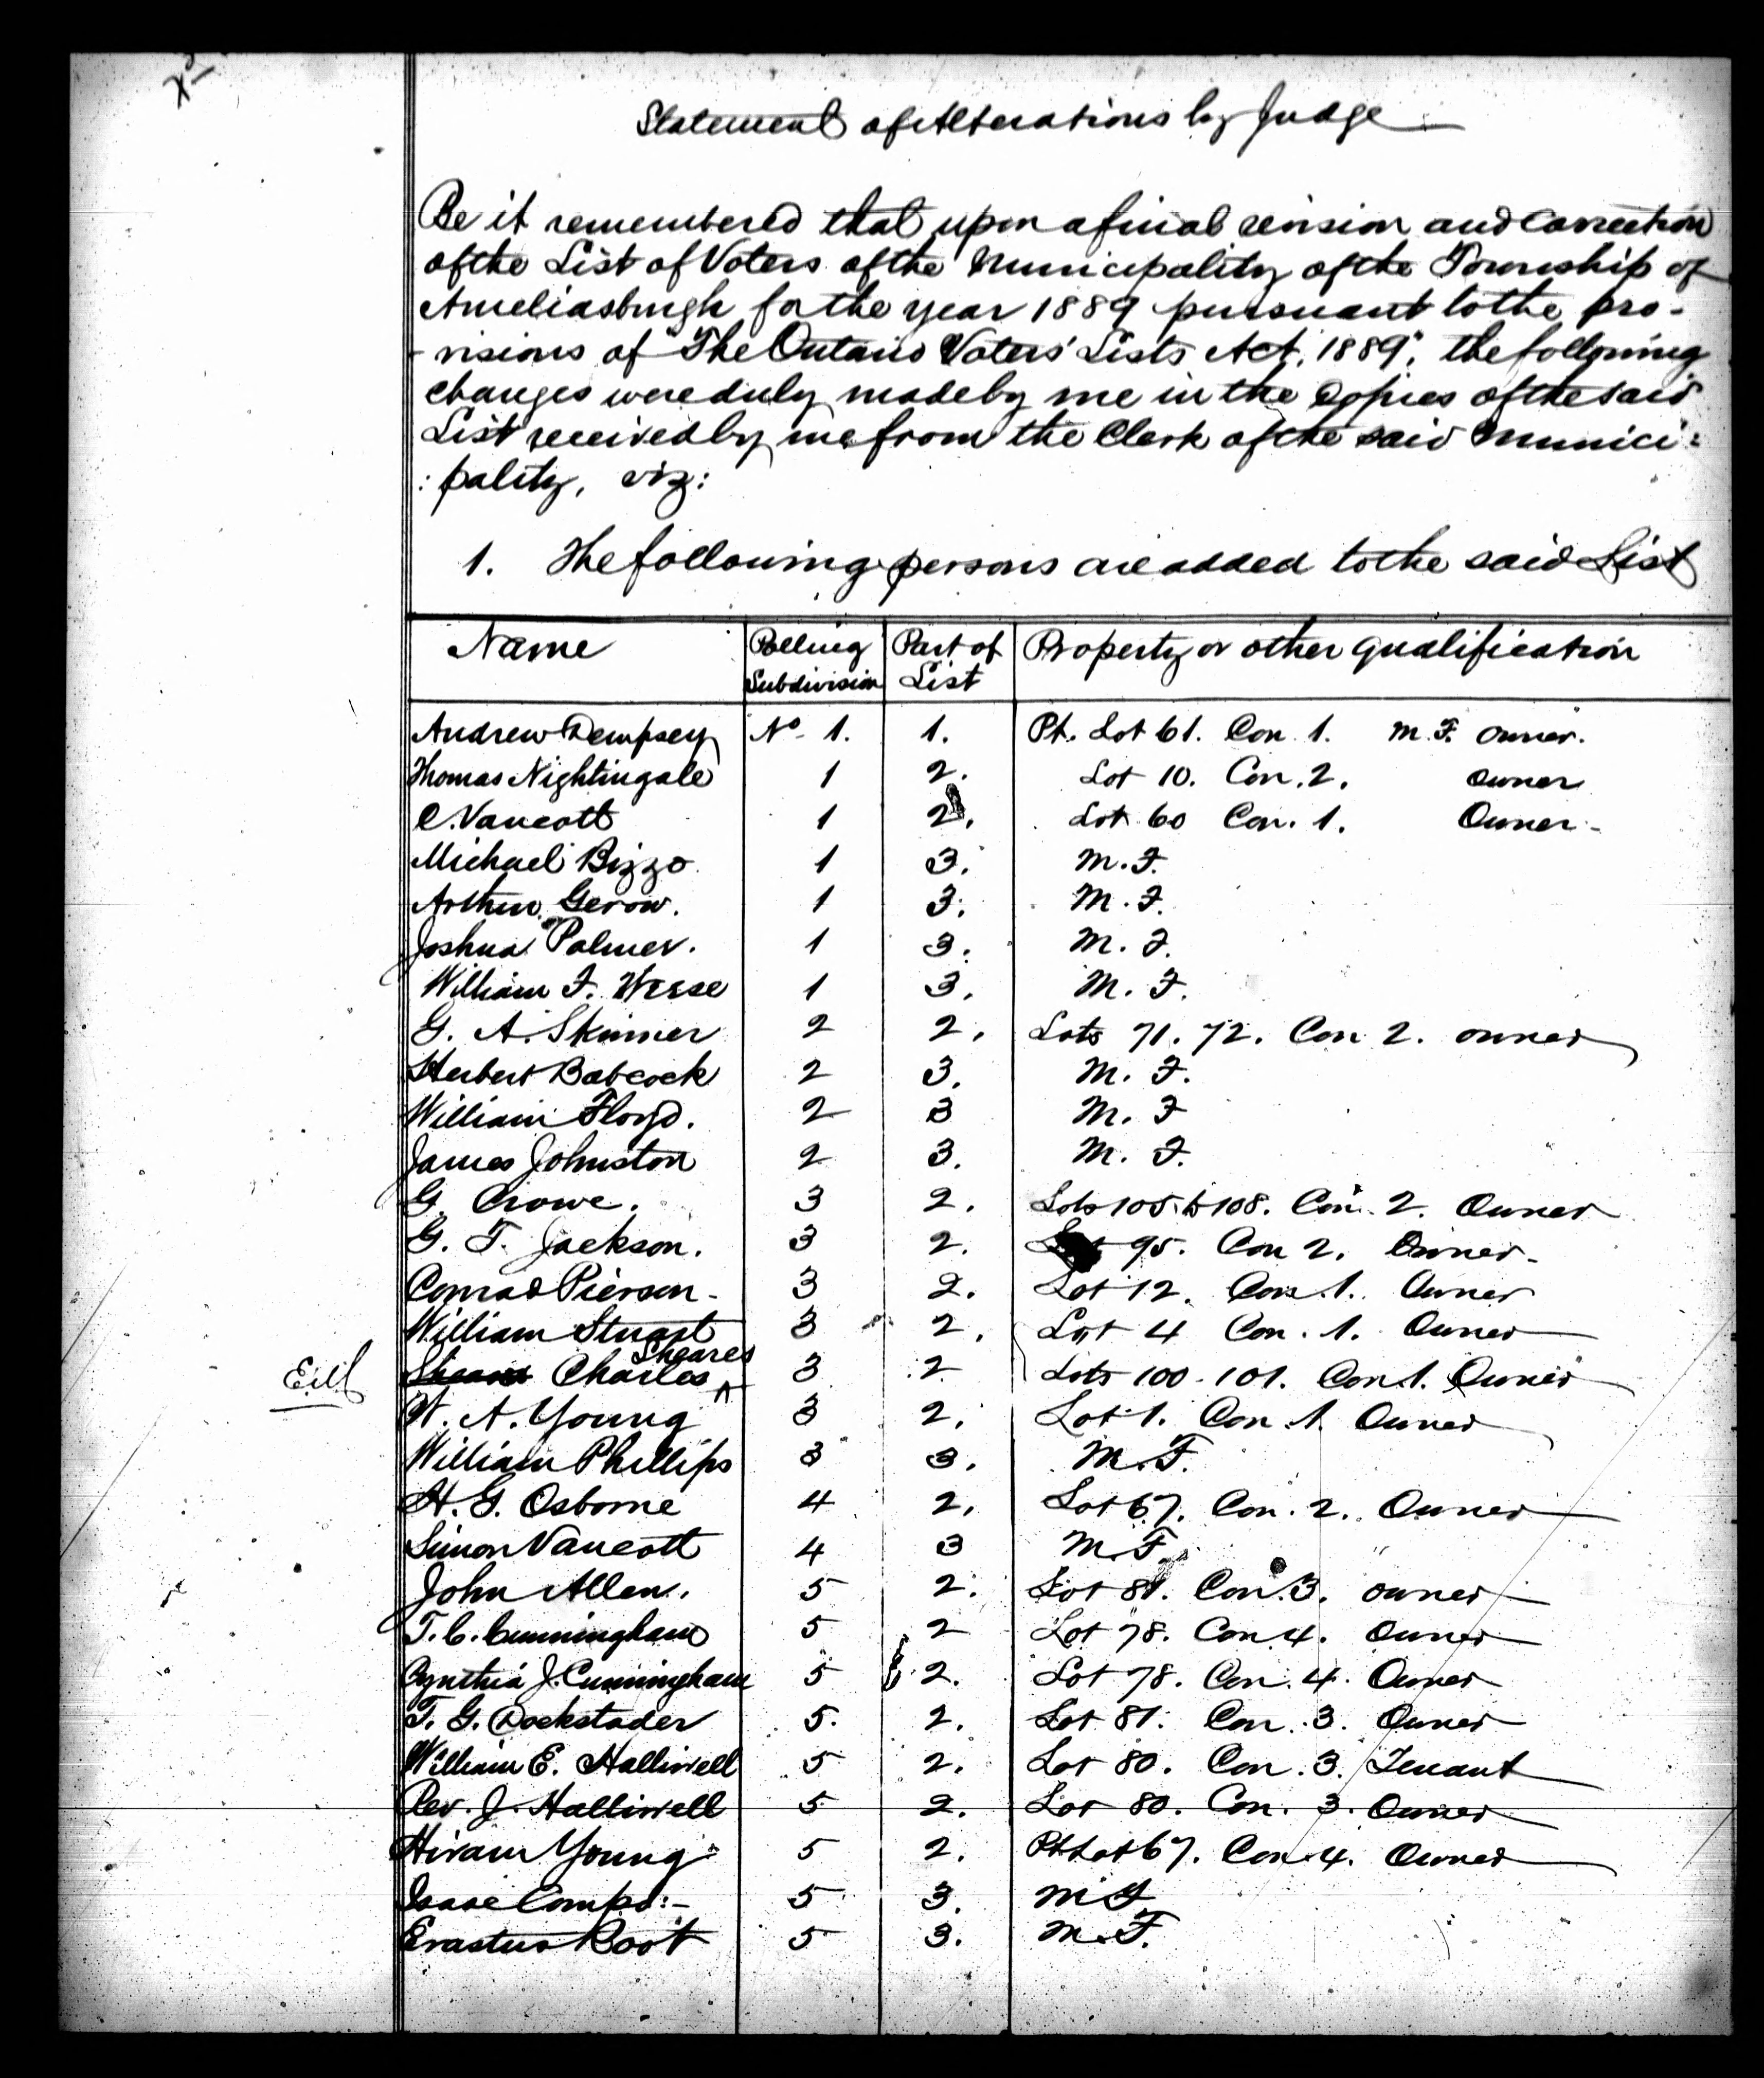 Statement of Alterations by Judge
Be it remembered that upon a final revision and correction
of the List of Voters of the Municipality of the Township of
Ameliasburgh for the year 1889 pursuant to the pro-
-visions of "The Ontario Voters' Lists Act, 1889", the following
changes were duly made by me in the copies of the said
List received by me from the Clerk of the said Munici:
:pality, viz:
1. The following persons are added to the said List
Name Polling Subdivision Part of List Property or other qualification
Andrew Dempsey No 1. 1. Pt. Lot 61. Con 1. M.F. owner.
Thomas Nightingale 1 2. Lot 10. Con. 2. owner
C. Vancott 1 2. Lot 60 Con. 1. Owner
Michael Bizzo 1 3. M.F.
Arthur Gerow. 1 3. M.F.
Joshua Palmer. 1 3. M.F.
William F. Weese 1 3. M.F.
G. A. Skinner 2 2. Lots 71. 72. Con 2. owner
Herbert Babcock 2 3. M.F.
William Floyd. 2 3 M.F
James Johnston 2 3. M.F.
G. Crowe. 3 2. Lots 105 to 108. Con. 2. Owner
G. T. Jackson. 3 2. Lot 95. Con 2. Owner-
Conrad Pierson- 3 2. Lot 12. Con. 1. Owner
William Stuart 3 2. Lot 4 Con. 1. Owner
Sheares
Charles 3 2 Lots 100-101. Con 1. Owner
W. A. Young 3 2. Lot 1. Con 1. Owner
William Phillips 3 3. M.F.
H. G. Osborne 4 2. Lot 67. Con. 2. Owner
Simon Vancott 4 3 M.F.
John Allen. 5 2. Lot 81. Con. 3. owner
T. C. Cunningham 5 2 Lot 78. Con 4. Owner
Cynthia J. Cunningham 5 2. Lot 78. Con. 4. Owner
T. G. Dockstader 5. 2. Lot 81. Con. 3. Owner
William E. Halliwell 5 2. Lot 80. Con. 3. Tenant
Rev. J. Halliwell 5 2. Lot 80. Con. 3. Owner
Hiram Young 5 2. Pt Lot 67. Con. 4. Owner
Isaac Compo:- 5 3. M.F
Erastus Root 5 3. M.F.